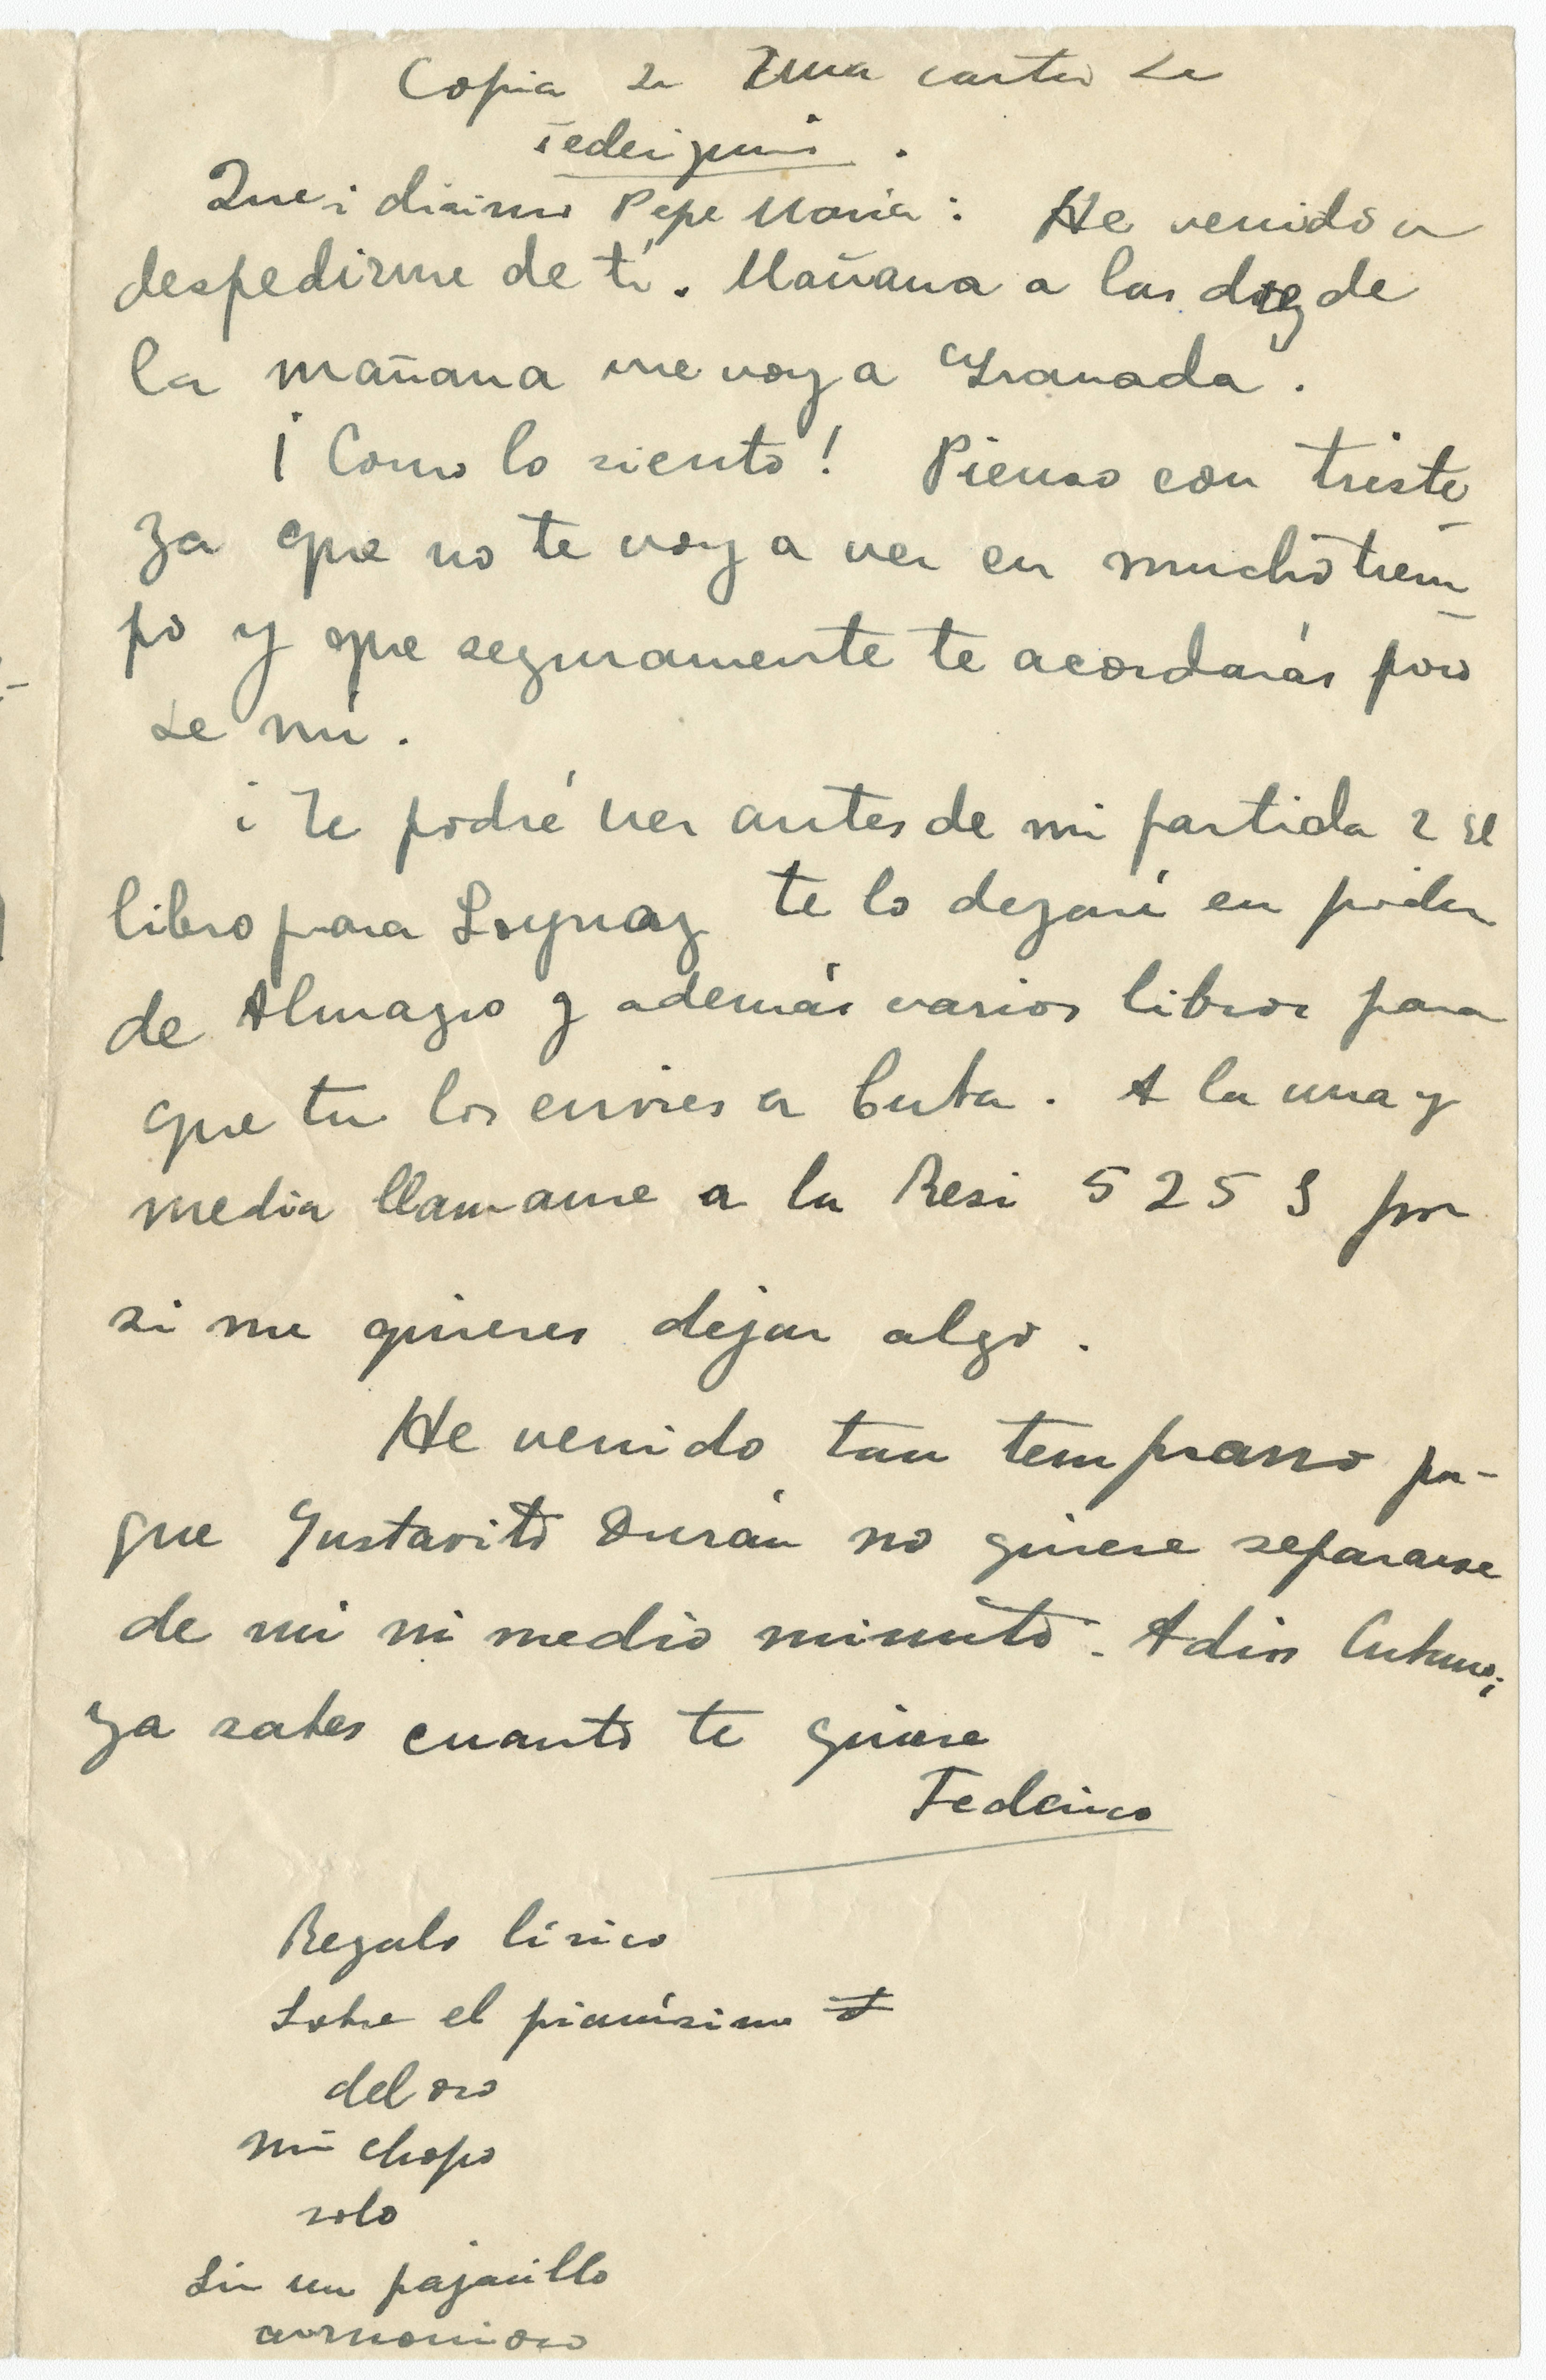 Copia de una carta de
Federiquito.
Queridísimo Pepe María: He venido a
despedirme de tí. Mañana a las diez de
la mañana me voy a Granada.
¡Como lo siento! Pienso con triste
za que no te voy a ver en mucho tiem
po y que seguramente te acordarás poco
de mí.
¿Te podré ver antes de mi partida? El
libro para Loynaz te lo dejaré en poder
de Almagro y además varios libros para
que tu los envies a Cuba. A la una y
media llamame a la Resi 5 2 5 3 por
si me quieres dejar algo.
He venido tan temprano por-
que Gustavito Durán no quiere separarse
de mi ni medio minuto. Adios Cubano;
ya sabes cuanto te quiere
Federico
Regalo lírico
Sobre el pianísimo
del oro
mi chopo
solo
Sin un pajarillo
armonioso